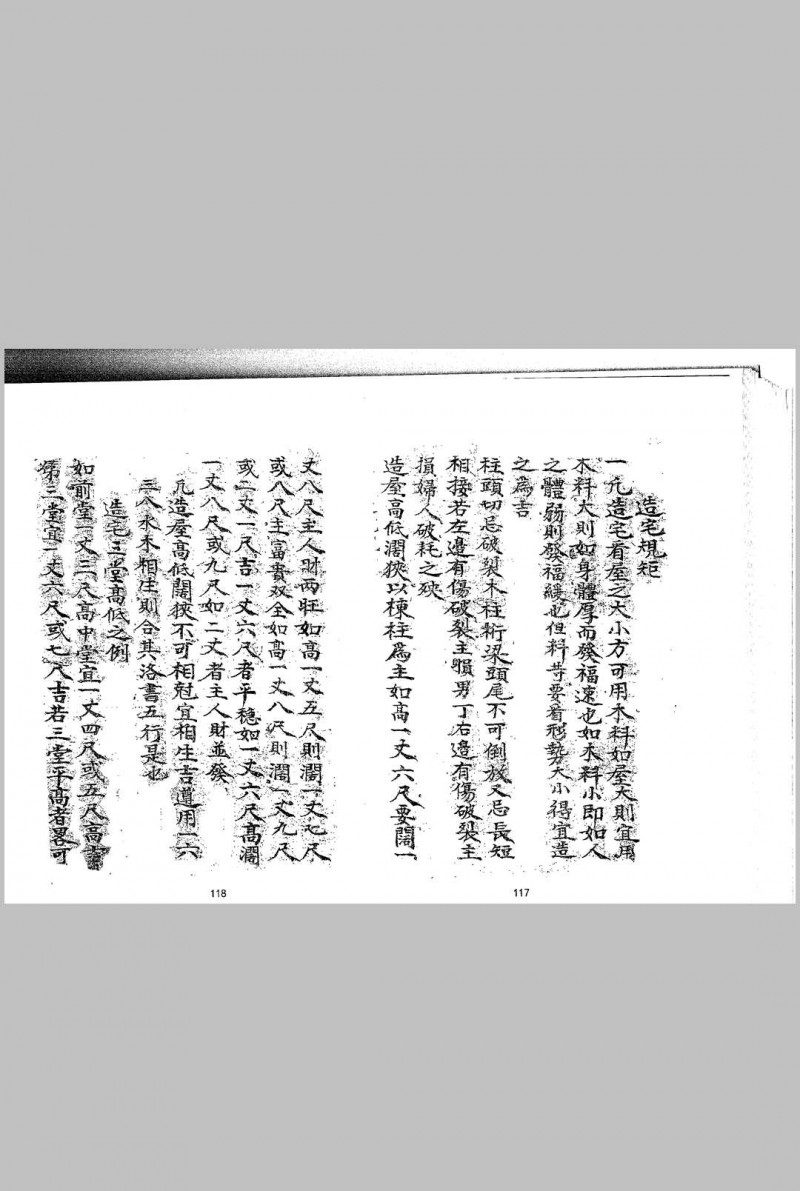 造宅規矩
一凢造宅看屋之大小方可用木料如屋大則宜用
木料大則如身體厚而發福速也如木料小即如人
之體弱則發福緩也但料苟要看形勢大小得宜造
之為吉
柱頭切忌破裂木柱桁梁頭尾不可倒放又忌長短
相接若左邊有傷破裂主損男丁右邊有傷破裂主
損婦人破耗之殃
造屋高低濶狹以棟柱為主如高一丈六尺要闊一
117
丈八尺主人財两旺如高一丈五尺則濶一丈七尺
或八尺主富貴双全如高一丈八尺則濶一丈九尺
或二丈一尺吉一丈六尺者平穩如一丈六尺高濶
一丈八尺或九尺如二丈者主人財並發
凢造屋高低闊狹不可相尅宜相生吉遵用一六
三八水木相生則合其洛書五行是也
造宅三堂高低之例
如前堂一丈三尺高中堂宜一丈四尺或五尺高
第三堂宜一丈六尺或七尺吉若三堂平高者畧可
118